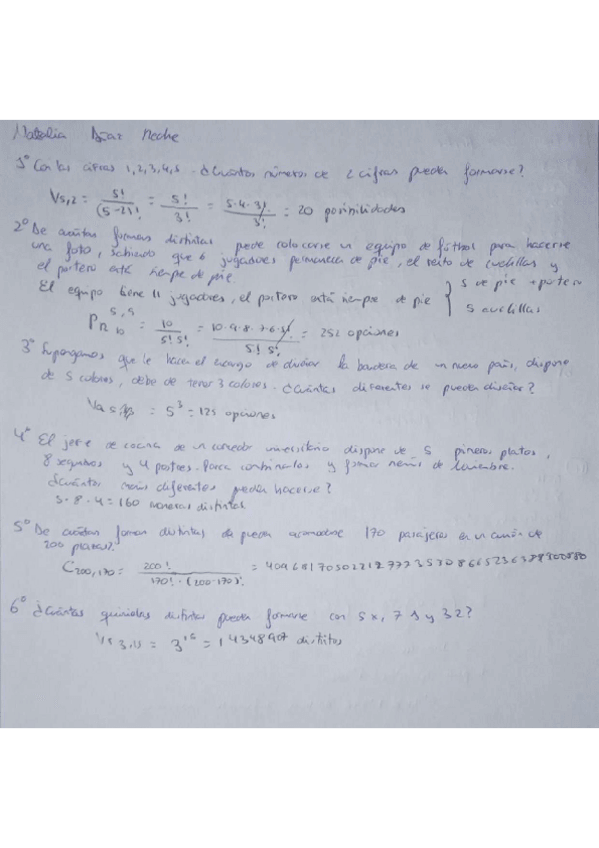 Natalia Díaz Noche
1º Con las cifras 1,2,3,4,5. ¿Cuántos números de 2 cifras pueden formarse?
V5,2 = 5! / (5-2)! = 5! / 3! = 5·4·3! / 3! = 20 posibilidades
2º De cuántas formas distintas puede colocarse un equipo de fútbol para hacerse
una foto, sabiendo que 6 jugadores permanecen de pie, el resto de cuclillas y
el portero está siempre de pie.
El equipo tiene 11 jugadores, el portero está siempre de pie { 5 de pie + portero
5 cuclillas
PR 10 5,5 = 10 / 5! 5! = 10·9·8·7·6·5! / 5! 5! = 252 opciones
3º Supongamos que le hacen el encargo de diseñar la bandera de un nuevo país, dispone
de 5 colores, debe de tener 3 colores. ¿Cuántas diferentes se pueden diseñar?
= 5³ = 125 opciones
4º El jefe de cocina de un comedor universitario dispone de 5 primeros platos,
8 segundos y 4 postres. Para combinarlos y formar menús de
¿Cuántos menús diferentes pueden hacerse?
5·8·4 = 160 maneras distintas
5º De cuántas formas distintas se pueden acomodarse 170 pasajeros en un avión de
200 plazas?
C200,170 = 200! / 170! · (200-170)! =
6º ¿Cuántas quinielas distintas pueden formarse con 5 x, 7 1 y 3 2?
3,15 = 3¹⁵ = 14348907 distintas